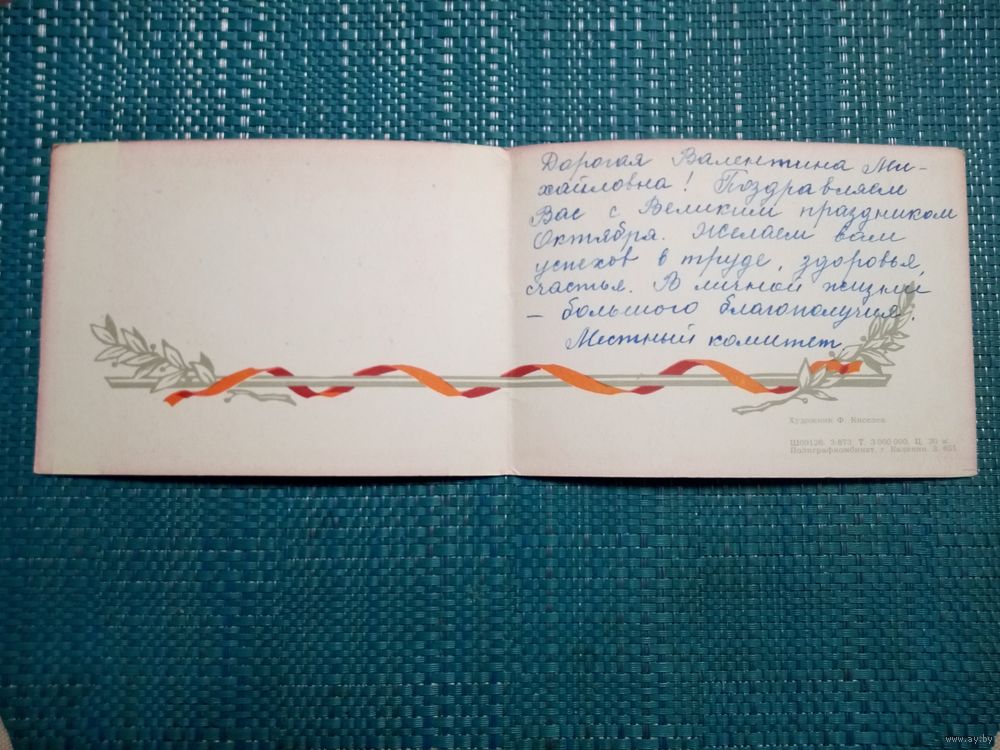 Дорогая Валентина Ми-
хайловна! Поздравляем
Вас с Великим праздником
Октября. Желаем вам
успехов в труде, здоровья,
счастья. В личной жизни
– большого благополучия.
Местный комитет
Художник Ф. Киселев
Ш09126. З-873 Т. 3 000 000. Ц. 20 к.
Полиграфкомбинат, г. Калинин. З. 651
www.ay.by